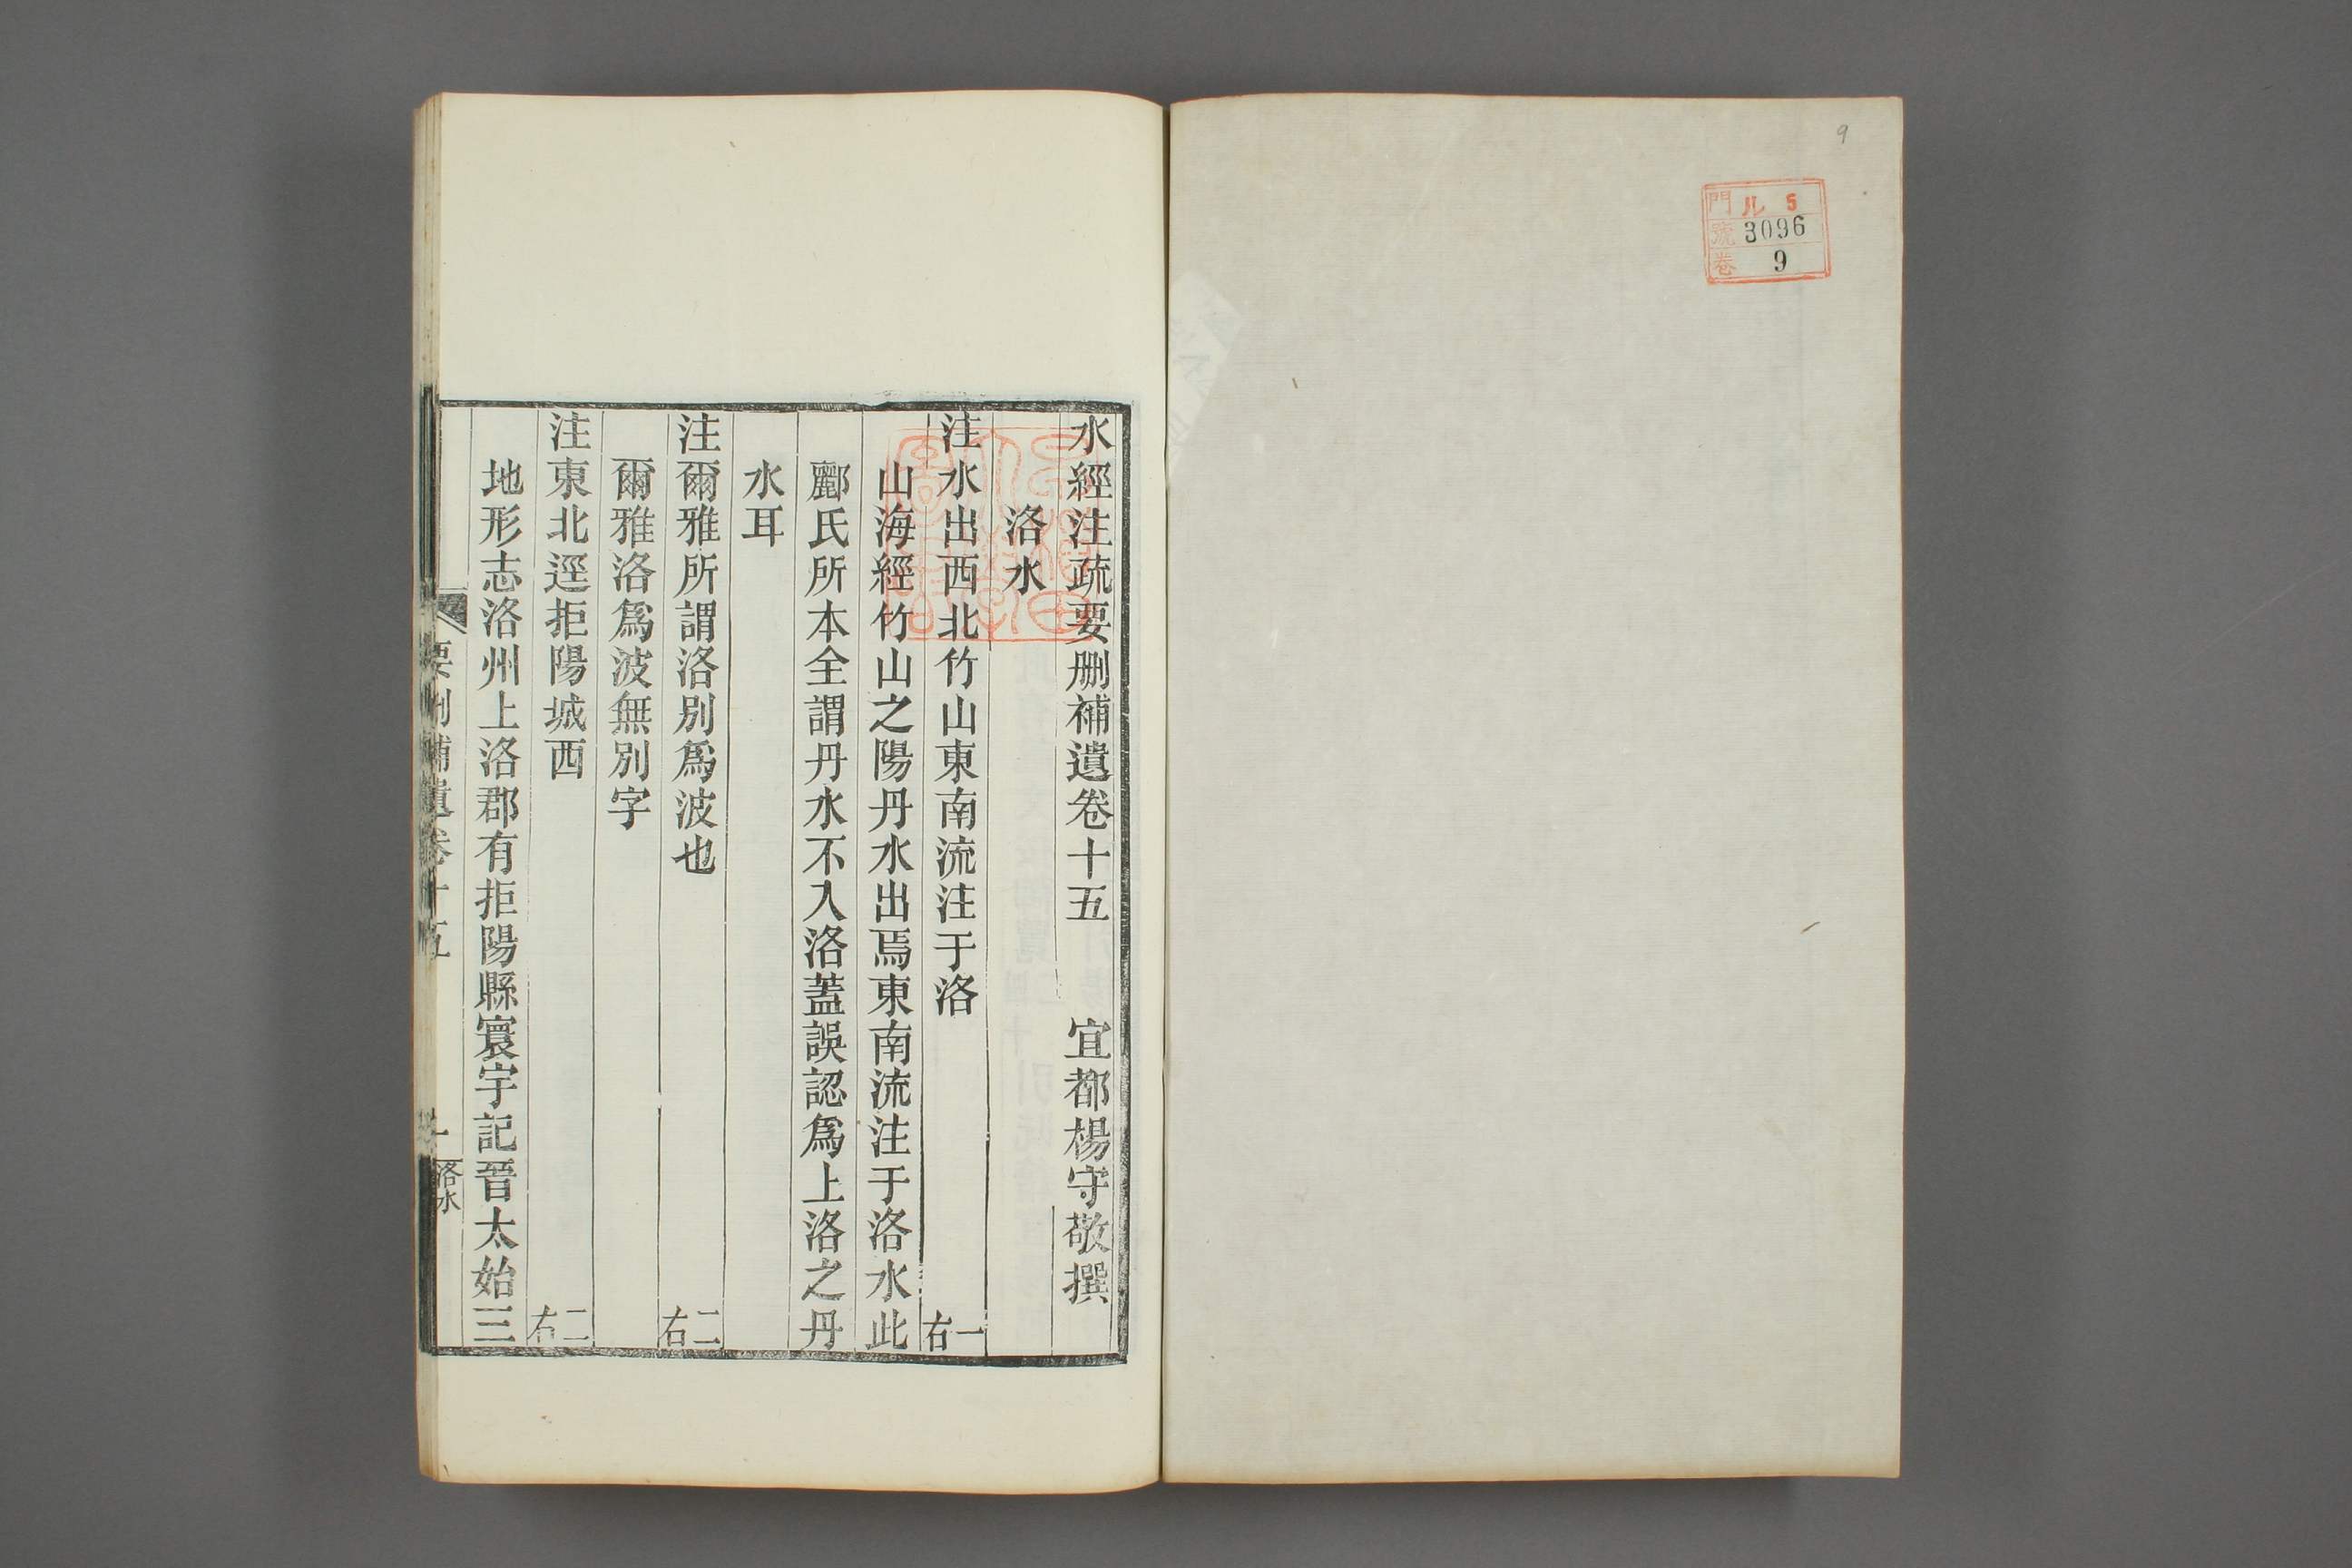 9
門 ル 5
號 3096
卷 9
水經注疏要删補遺卷十五 宜都楊守敬撰
洛水
注水出西北竹山東南流注于洛 一右
山海經竹山之陽丹水出焉東南流注于洛水此
酈氏所本全謂丹水不入洛蓋誤認爲上洛之丹
水耳
注爾雅所謂洛别爲波也 二右
爾雅洛爲波無別字
注東北逕拒陽城西 二右
地形志洛州上洛郡有拒陽縣寰宇記晉太始三
要刪補遺卷十五 一 洛水